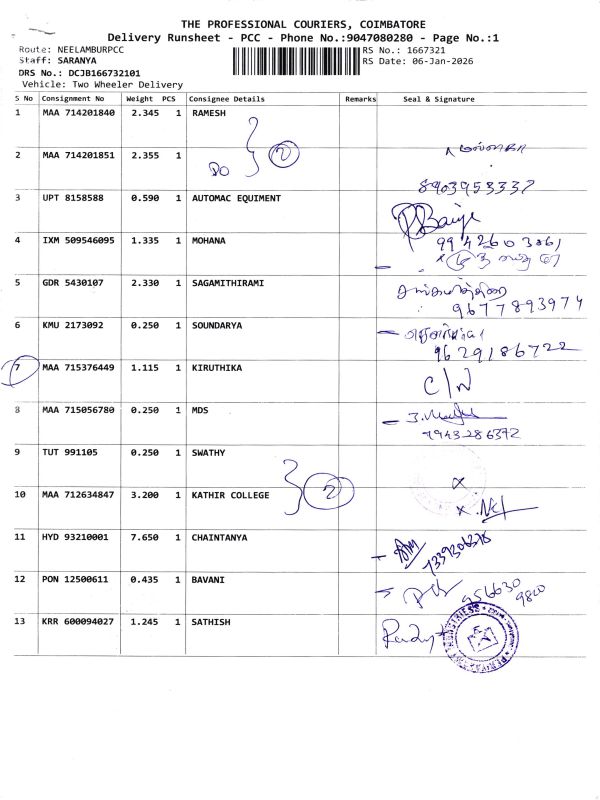 THE PROFESSIONAL COURIERS, COIMBATORE
Delivery Runsheet - PCC - Phone No.:9047080280 - Page No.:1
Route: NEELAMBURPCC RS No.: 1667321
Staff: SARANYA RS Date: 06-Jan-2026
DRS No.: DCJB166732101
Vehicle: Two Wheeler Delivery
S No Consignment No Weight PCS Consignee Details Remarks Seal & Signature
1 MAA 714201840 2.345 1 RAMESH
2 MAA 714201851 2.355 1 DO 2
8903953337
3 UPT 8158588 0.590 1 AUTOMAC EQUIMENT
4 IXM 509546095 1.335 1 MOHANA 9942603061
5 GDR 5430107 2.330 1 SAGAMITHIRAMI
9677893974
6 KMU 2173092 0.250 1 SOUNDARYA
9629186722
7 MAA 715376449 1.115 1 KIRUTHIKA C/N
8 MAA 715056780 0.250 1 MDS
7943286372
9 TUT 991105 0.250 1 SWATHY
10 MAA 712634847 3.200 1 KATHIR COLLEGE 2
11 HYD 93210001 7.650 1 CHAINTANYA
12 PON 12500611 0.435 1 BAVANI 956630
9820
13 KRR 600094027 1.245 1 SATHISH